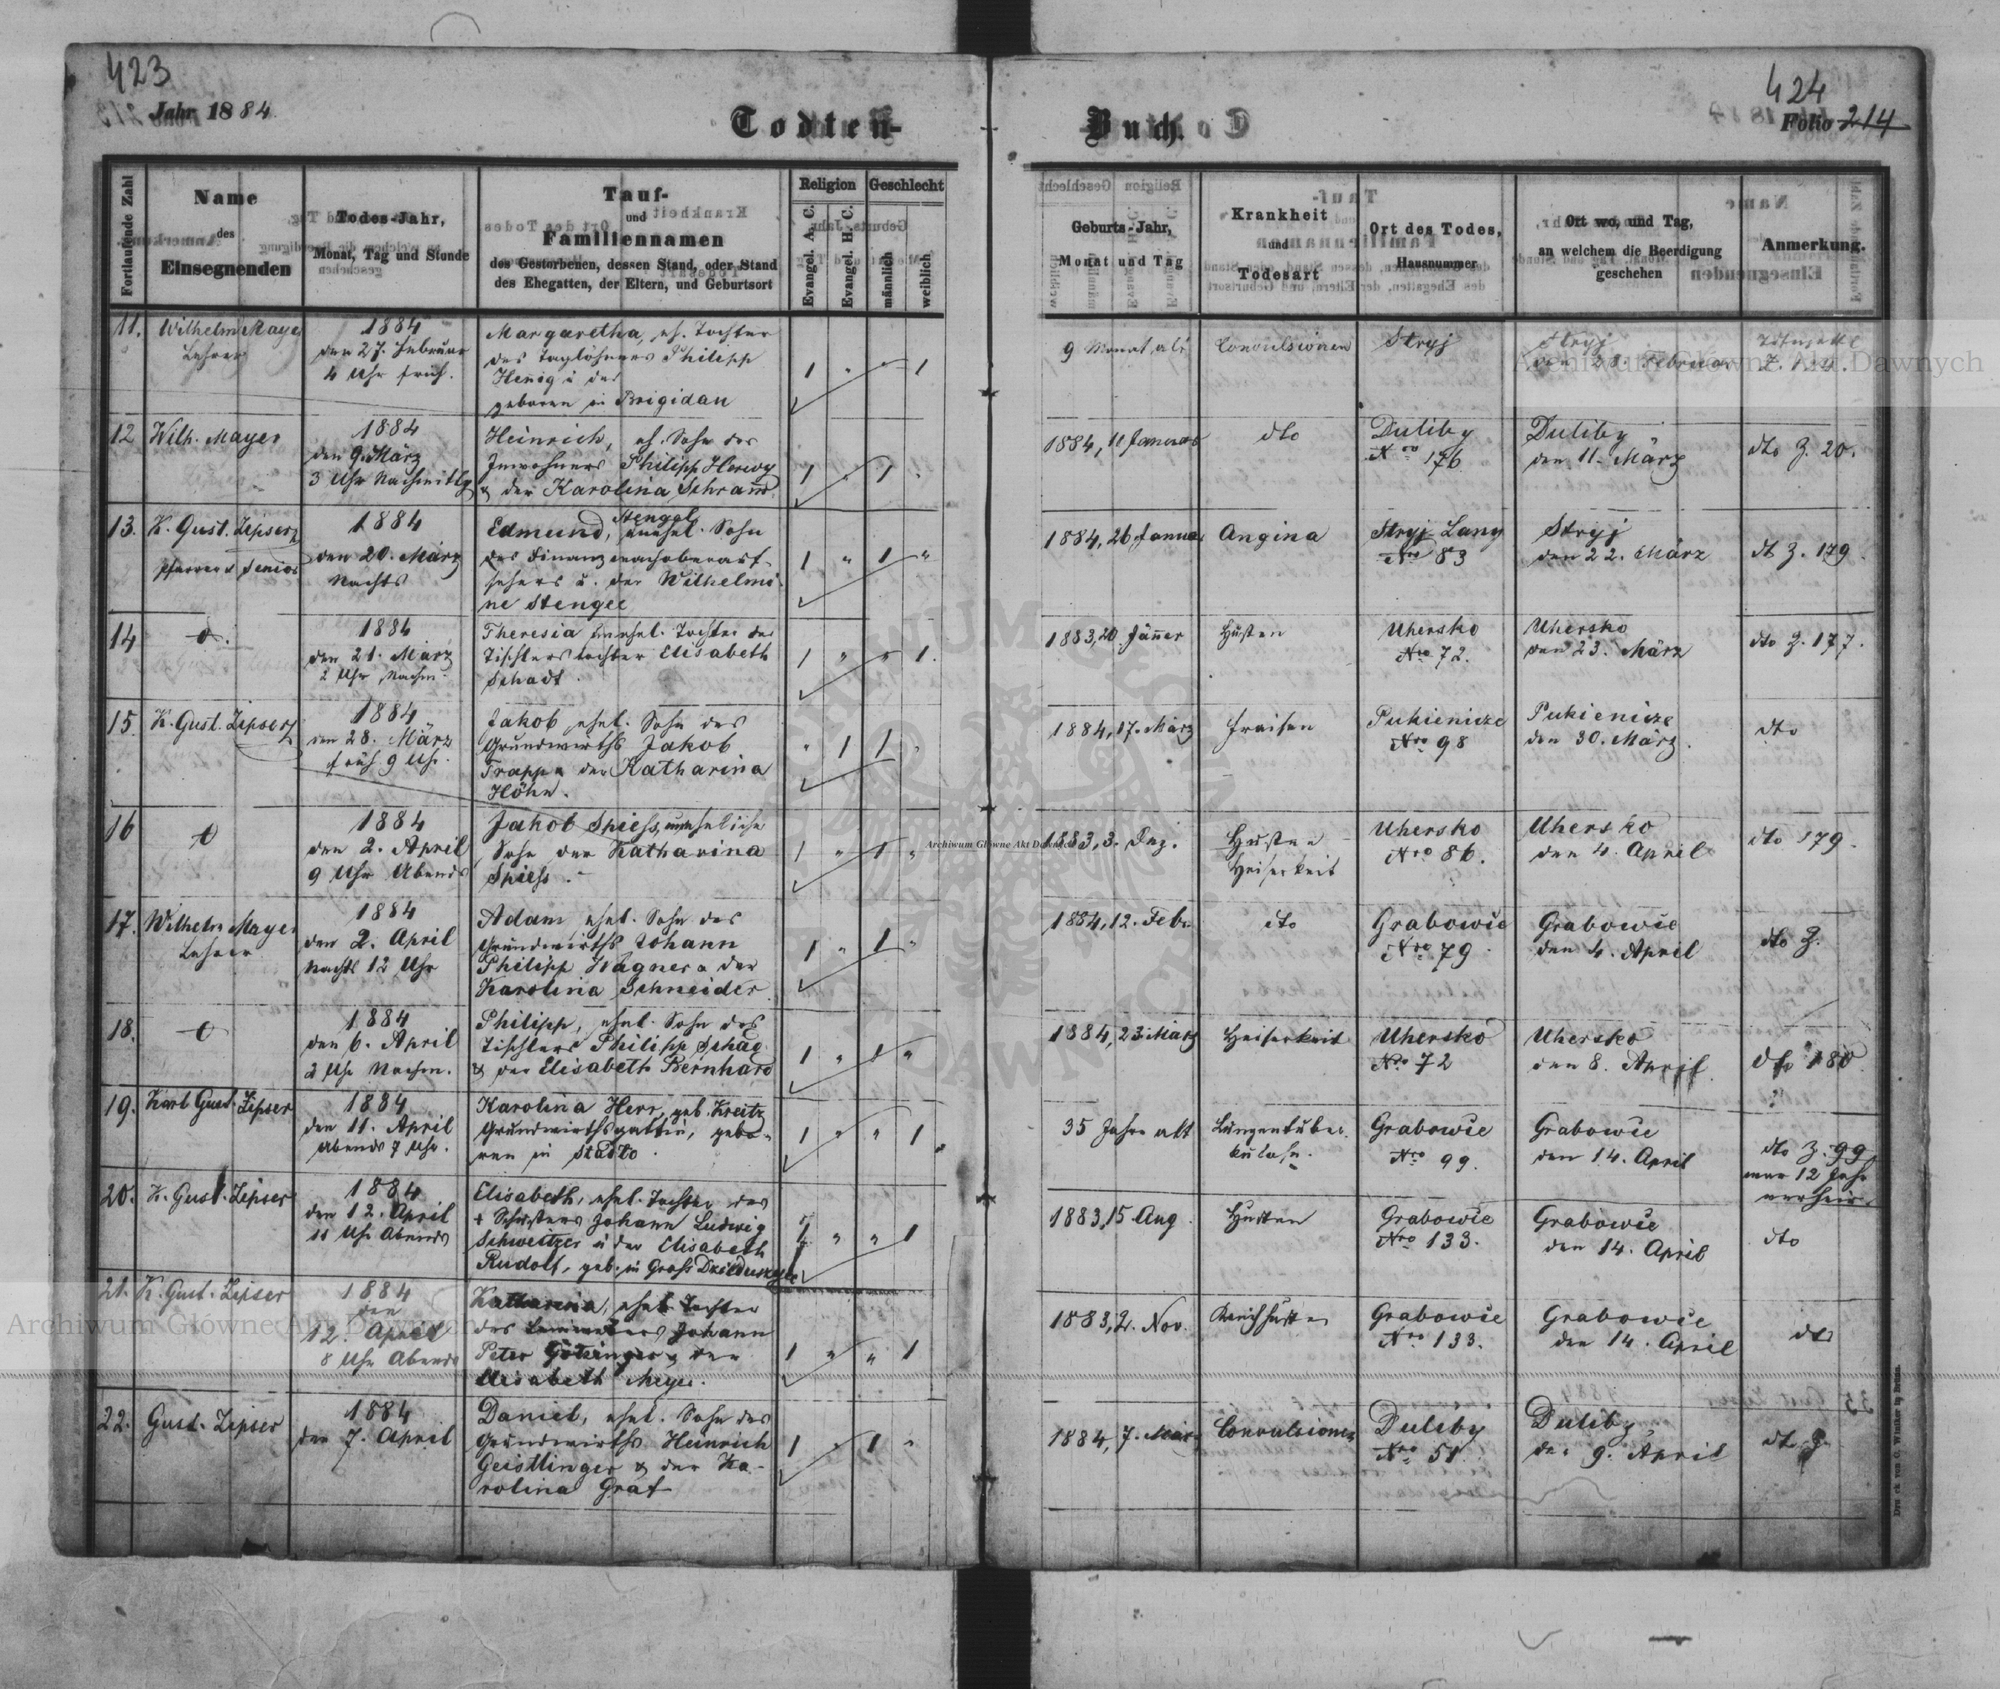 423
Jahr 1884
Todten-
Fortlaufende Zahl
Name
des
Einsegnenden
Todes-Jahr,
Monat, Tag und Stunde
Tauf-
und
Familiennamen
des Gestorbenen, dessen Stand, oder Stand
des Ehegatten, der Eltern, und Geburtsort
Religion
Evangel. A. C.
Evangel. H. C.
Geschlecht
männlich
weiblich
11. Wilhelm Mayer
Lehrer
1884
den 27. Februar
4 Uhr früh.
Margaretha, eh. Tochter
des Taglöhners Philipp
Hennig u der
geboren in Brigidau
1 " " 1
12 Wilh. Mayer
1884
den 9. März
3 Uhr Nachmittg
Heinrich, eh. Sohn des
Inwohners Philipp Herwy
& der Karolina Schram
1 " 1 "
13. K. Gust. Zipser
Pfarrer & Senior
1884
den 20. März
Nachts
Stengel
Edmund, unehel. Sohn
des Finanzwachoberauf-
sehers u. der Wilhelmi-
ne Stengel
1 " 1 "
14
1884
den 21. März
2 Uhr Nachm.
Theresia unehel. Tochter der
Tischlerstochter Elisabeth
Schadt.
1 " " 1.
15. K. Gust. Zipser
1884
den 28. März
früh 9 Uhr.
Jakob ehel. Sohn des
Grundwirths Jakob
Trapp & der Katharina
Höhn.
" 1 1 "
16
1884
den 2. April
9 Uhr Abends
Jakob Spiess, uneheliche
Sohn der Katharina
Spiess.
1 " 1 "
17. Wilhelm Mayer
Lehrer
1884
den 2. April
Nachts 12 Uhr
Adam, ehel. Sohn des
Grundwirths Johann
Philipp Wagner & der
Karolina Schneider
1 " 1 "
18.
1884
den 6. April
2 Uhr Nachm.
Philipp, ehel. Sohn des
Tischlers Philipp Schad
& der Elisabeth Bernhard
1 " 1 "
19. Karl Gust. Zipser
1884
den 11. April
Abends 7 Uhr.
Karolina Herr, geb. Kreitz
Grundwirthsgattin, gebo-
ren in Stadło.
1 " " 1
20. K. Gust. Zipser
1884
den 12. April
11 Uhr Abends
Elisabeth, ehel. Tochter des
+ Schusters Johann Ludwig
Schweitzer u der Elisabeth
Rudolf, geb. in Gross Dzieduszyce
1 " " 1
21. K. Gust. Zipser
1884
den
12. April
8 Uhr Abends
Katharina, ehel. Tochter
des Johann
Peter Götzinger & der
Elisabeth Meyer.
1 " " 1
22. Gust. Zipser
1884
den 7. April
Daniel, ehel. Sohn des
Grundwirths Heinrich
Geistlinger & der Ka-
rolina Graf
1 " 1 "
424
Buch.
Folio 214
Geburts-Jahr,
Monat und Tag
Krankheit
und
Todesart
Ort des Todes,
Hausnummer
Ort wo, und Tag,
an welchem die Beerdigung
geschehen
Anmerkung.
9 Monat alt
Convulsionen
Stryj
Stryj
den 28. Februar
1884, 11 Januar
dto
Duliby
Nro 176
Duliby
den 11. März
dto Z. 20.
1884, 26. Januar
Angina
Stryj Lany
Nro 83
Stryj
den 22. März
dt Z. 179
1883, 20. Jänner
Husten
Uhersko
Nro 72.
Uhersko
den 23. März
dto Z. 177.
1884, 17. März
Fraisen
Pukienicze
Nro 98
Pukienicze
den 30. März.
dto
1883, 3. Dez.
Husten
Heiserkeit
Uhersko
Nro 86.
Uhersko
den 4. April
dto 179.
1884, 12. Feb.
dto
Grabowie
Nro 79.
Grabowie
den 4. April
dto Z.
1884, 23 März
Heiserkeit
Uhersko
Nro 72
Uhersko
den 8. April
dto 180
35 Jahre alt
Lungentuber-
kulose.
Grabowie
Nro 99.
Grabowie
den 14. April
dto Z. 99
war 12 Jahr
verheir.
1883, 15 Aug.
Husten
Grabowie
Nro 133.
Grabowie
den 14. April
dto
1883, 2. Nov.
Keuchhusten
Grabowie
Nro 133.
Grabowie
den 14. April
dto
1884, 7. März
Convulsionen
Duliby
Nro 51.
Duliby
den 9. April
dto Z.
Druck von C. Winiker in Brünn.
Archiwum Główne Akt Dawnych
Archiwum Główne Akt Dawnych
Archiwum Główne Akt Dawnych